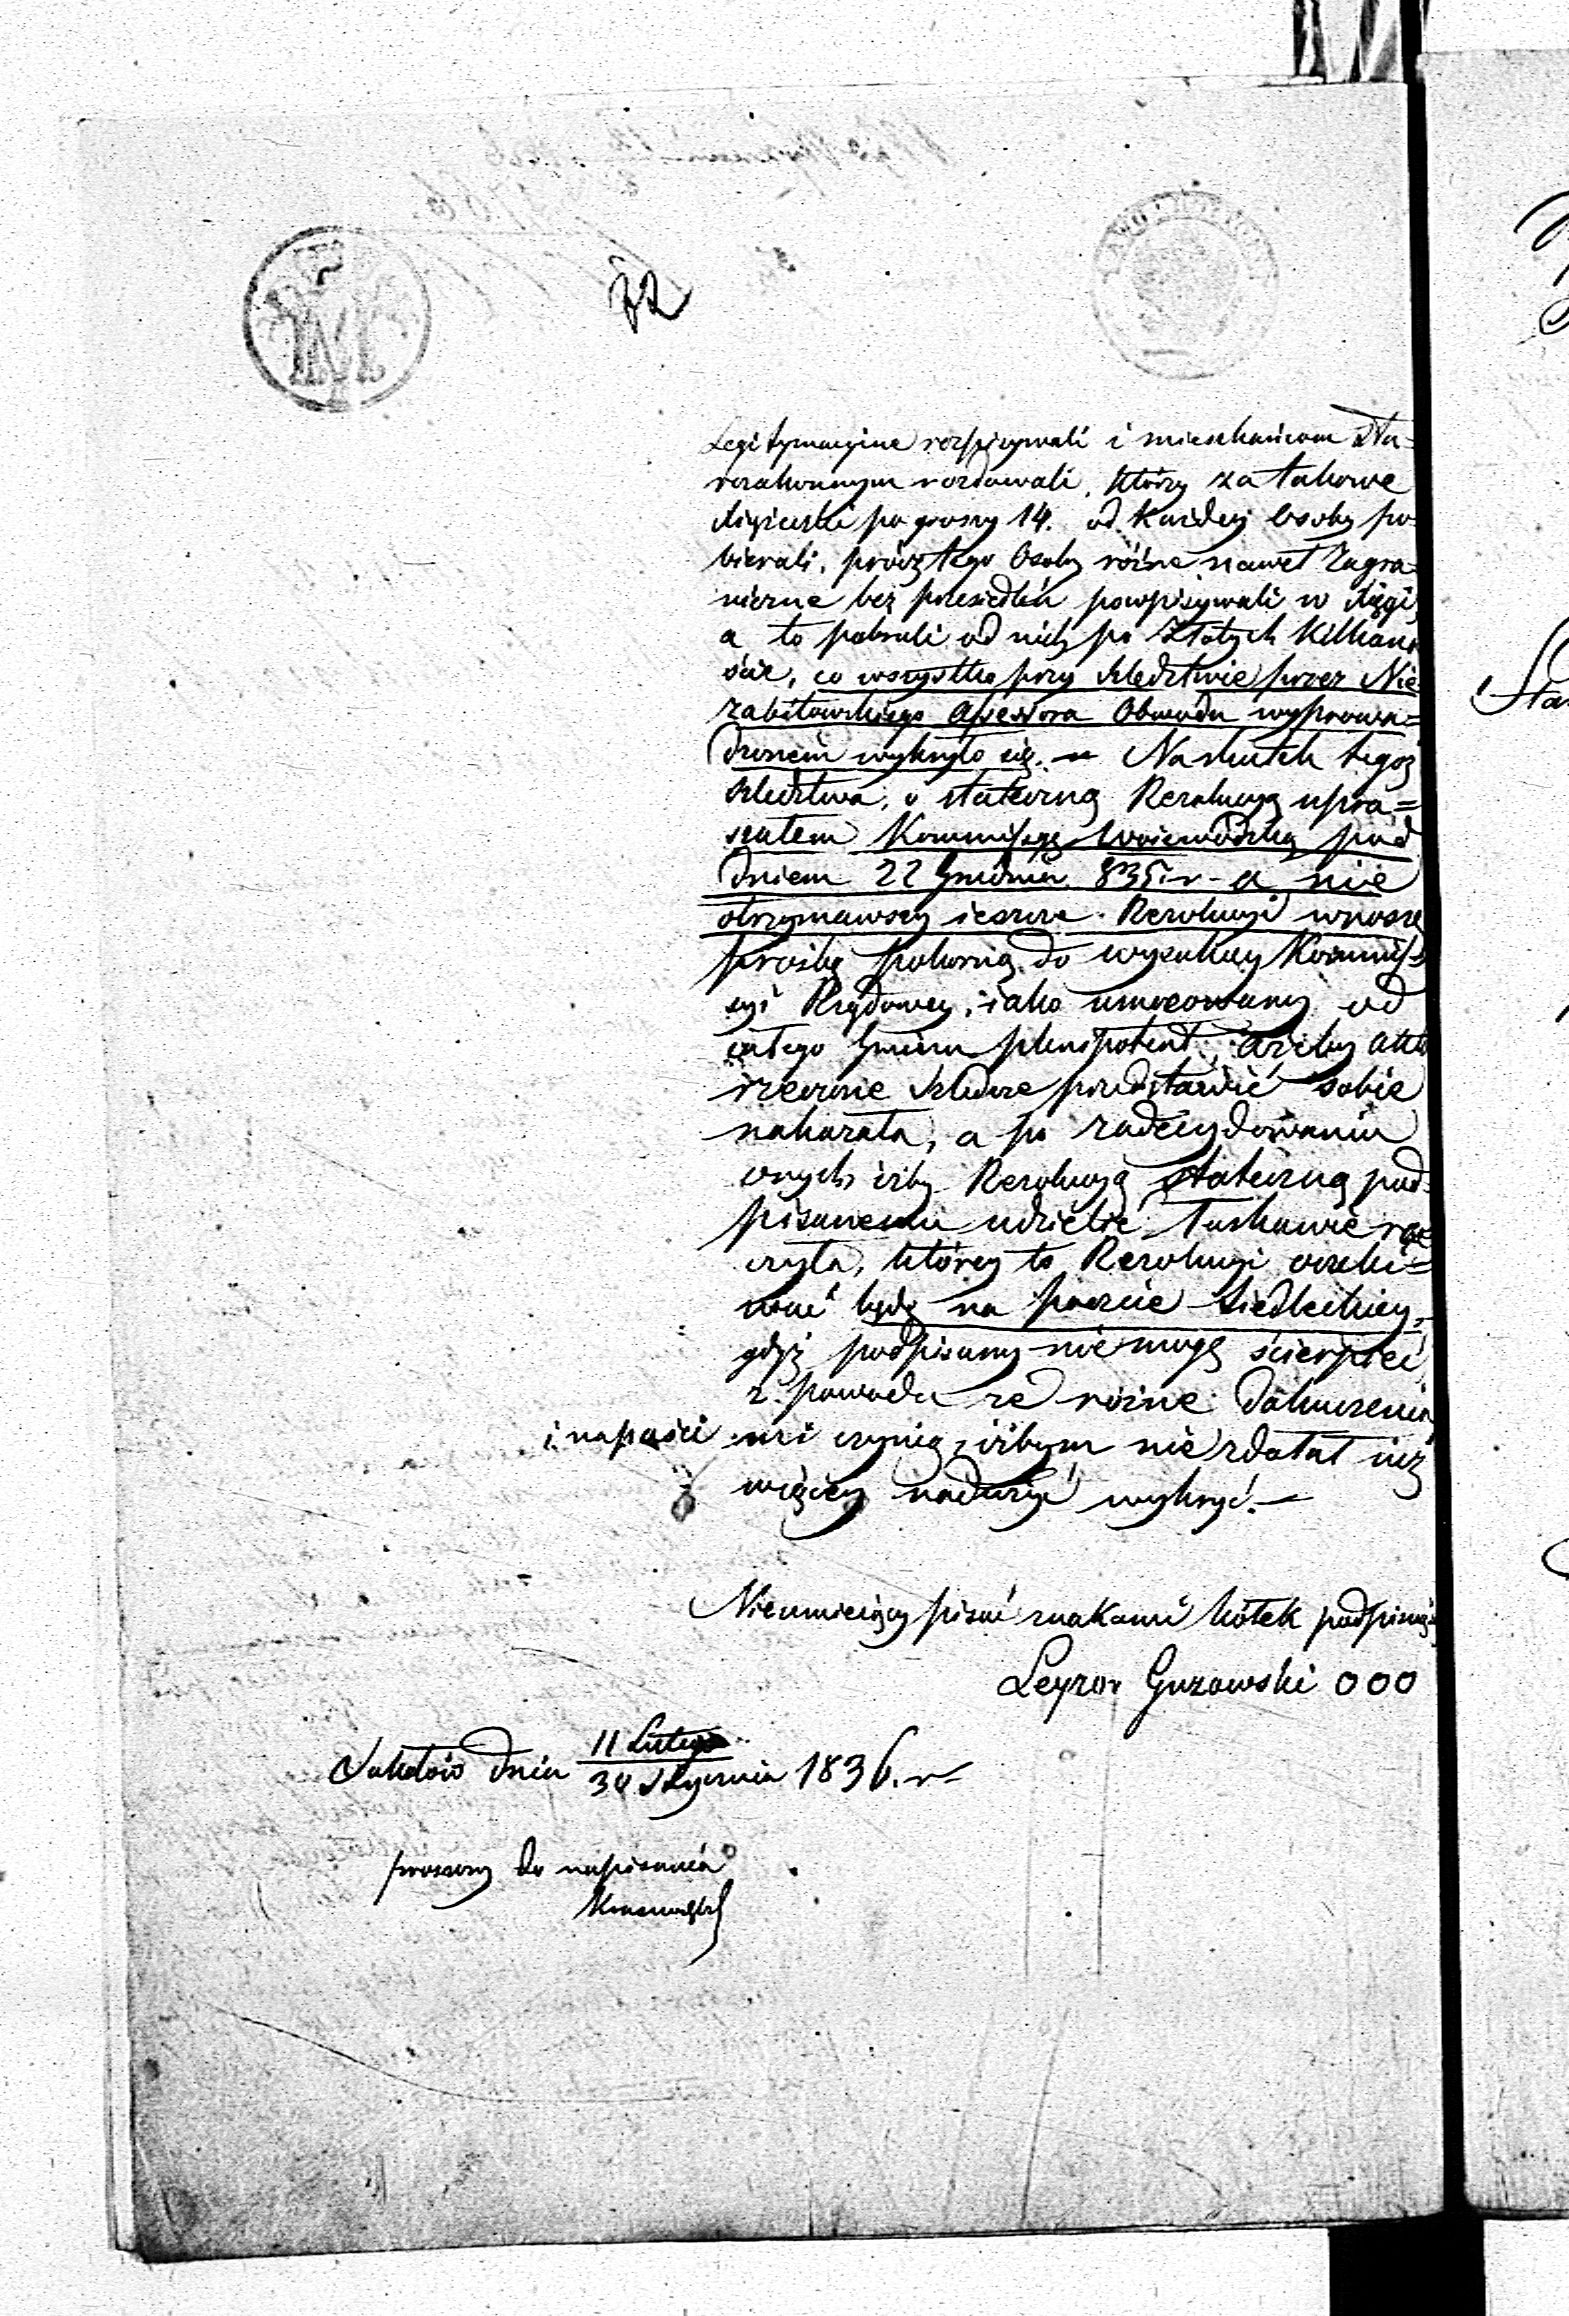 72
Legitymacyine rozpisywali i mieszkańcom Sta=
rozakonnym rozdawali, którzy za takowe
Xiążeczki po groszy 14. od każdey Osoby po=
bierali, prócz tego Osoby różne nawet Zagra=
niczne bez przesiedleń powpisywali w Xięgi,
a to pobrali od nich po Złotych Kilkana
ście, co wszystko przy śledztwie przez Nie
zabitowskiego Assessora Obwodu wyprowa=
dzonem wykryło się. — Na skutek tegoż
śledztwa, o stateczną Rezolucyą upra=
szałem Kommissyę Woiewódzką pod
dniem 22 Grudnia 835. r. a nie
otrzymawszy ieszcze Rezolucyi wnoszę
prośbę pokorną do wysokiey Kommis=
syi Rządowey, iako umocowany od
całego Gminu plenipotent, ażeby akta
rzeczone śledcze przedstawić sobie
nakazała, a po zadecydowaniu
onych iżby Rezolucyą stateczną pod=
pisanemu udzielić łaskawie ra
czyła, którey to Rezolucyi oczeki=
wać będę na poczcie Siedleckiey,
gdyż podpisany nie mogę ścierpieć
z powodu że różne dokuczenia
i napaści mi czynią, iżbym nie zdołał iuż
więcey nadużyć wykryć. —
Nieumieiący pisać znakami kółek podpisuię
Leyzor Guzowski 000
dnia 11 Lutego
30 Stycznia 1836. r.
proszony do napisania